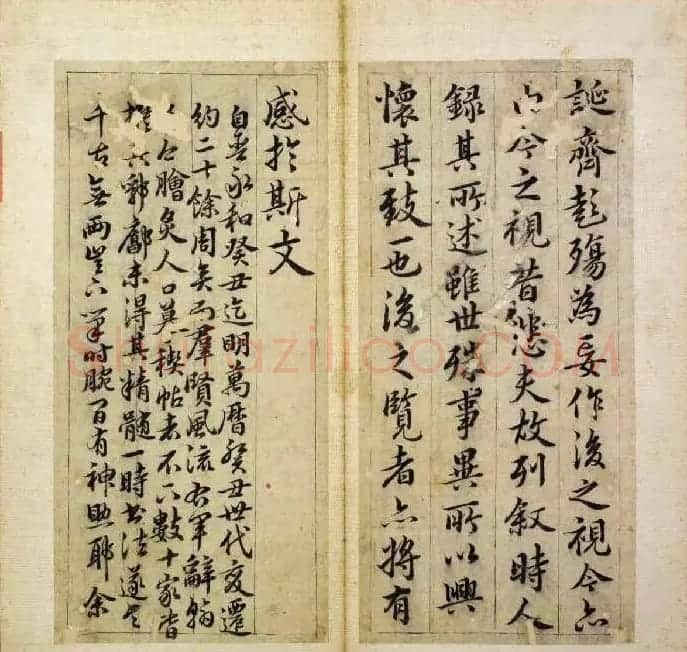 誕齊彭殤為妄作後之視今亦
由今之視昔悲夫故列叙時人
錄其所述雖世殊事異所以興
懷其致一也後之覽者亦將有
感於斯文
自晉永和癸丑迄明萬曆癸丑世代变遷
約二十餘周矣而羣賢風流右軍辭翰
膾炙人口莫禊帖者不下數十家皆
未得其精髓一時書法遂
千古無兩豈下筆時腕有神助耶余